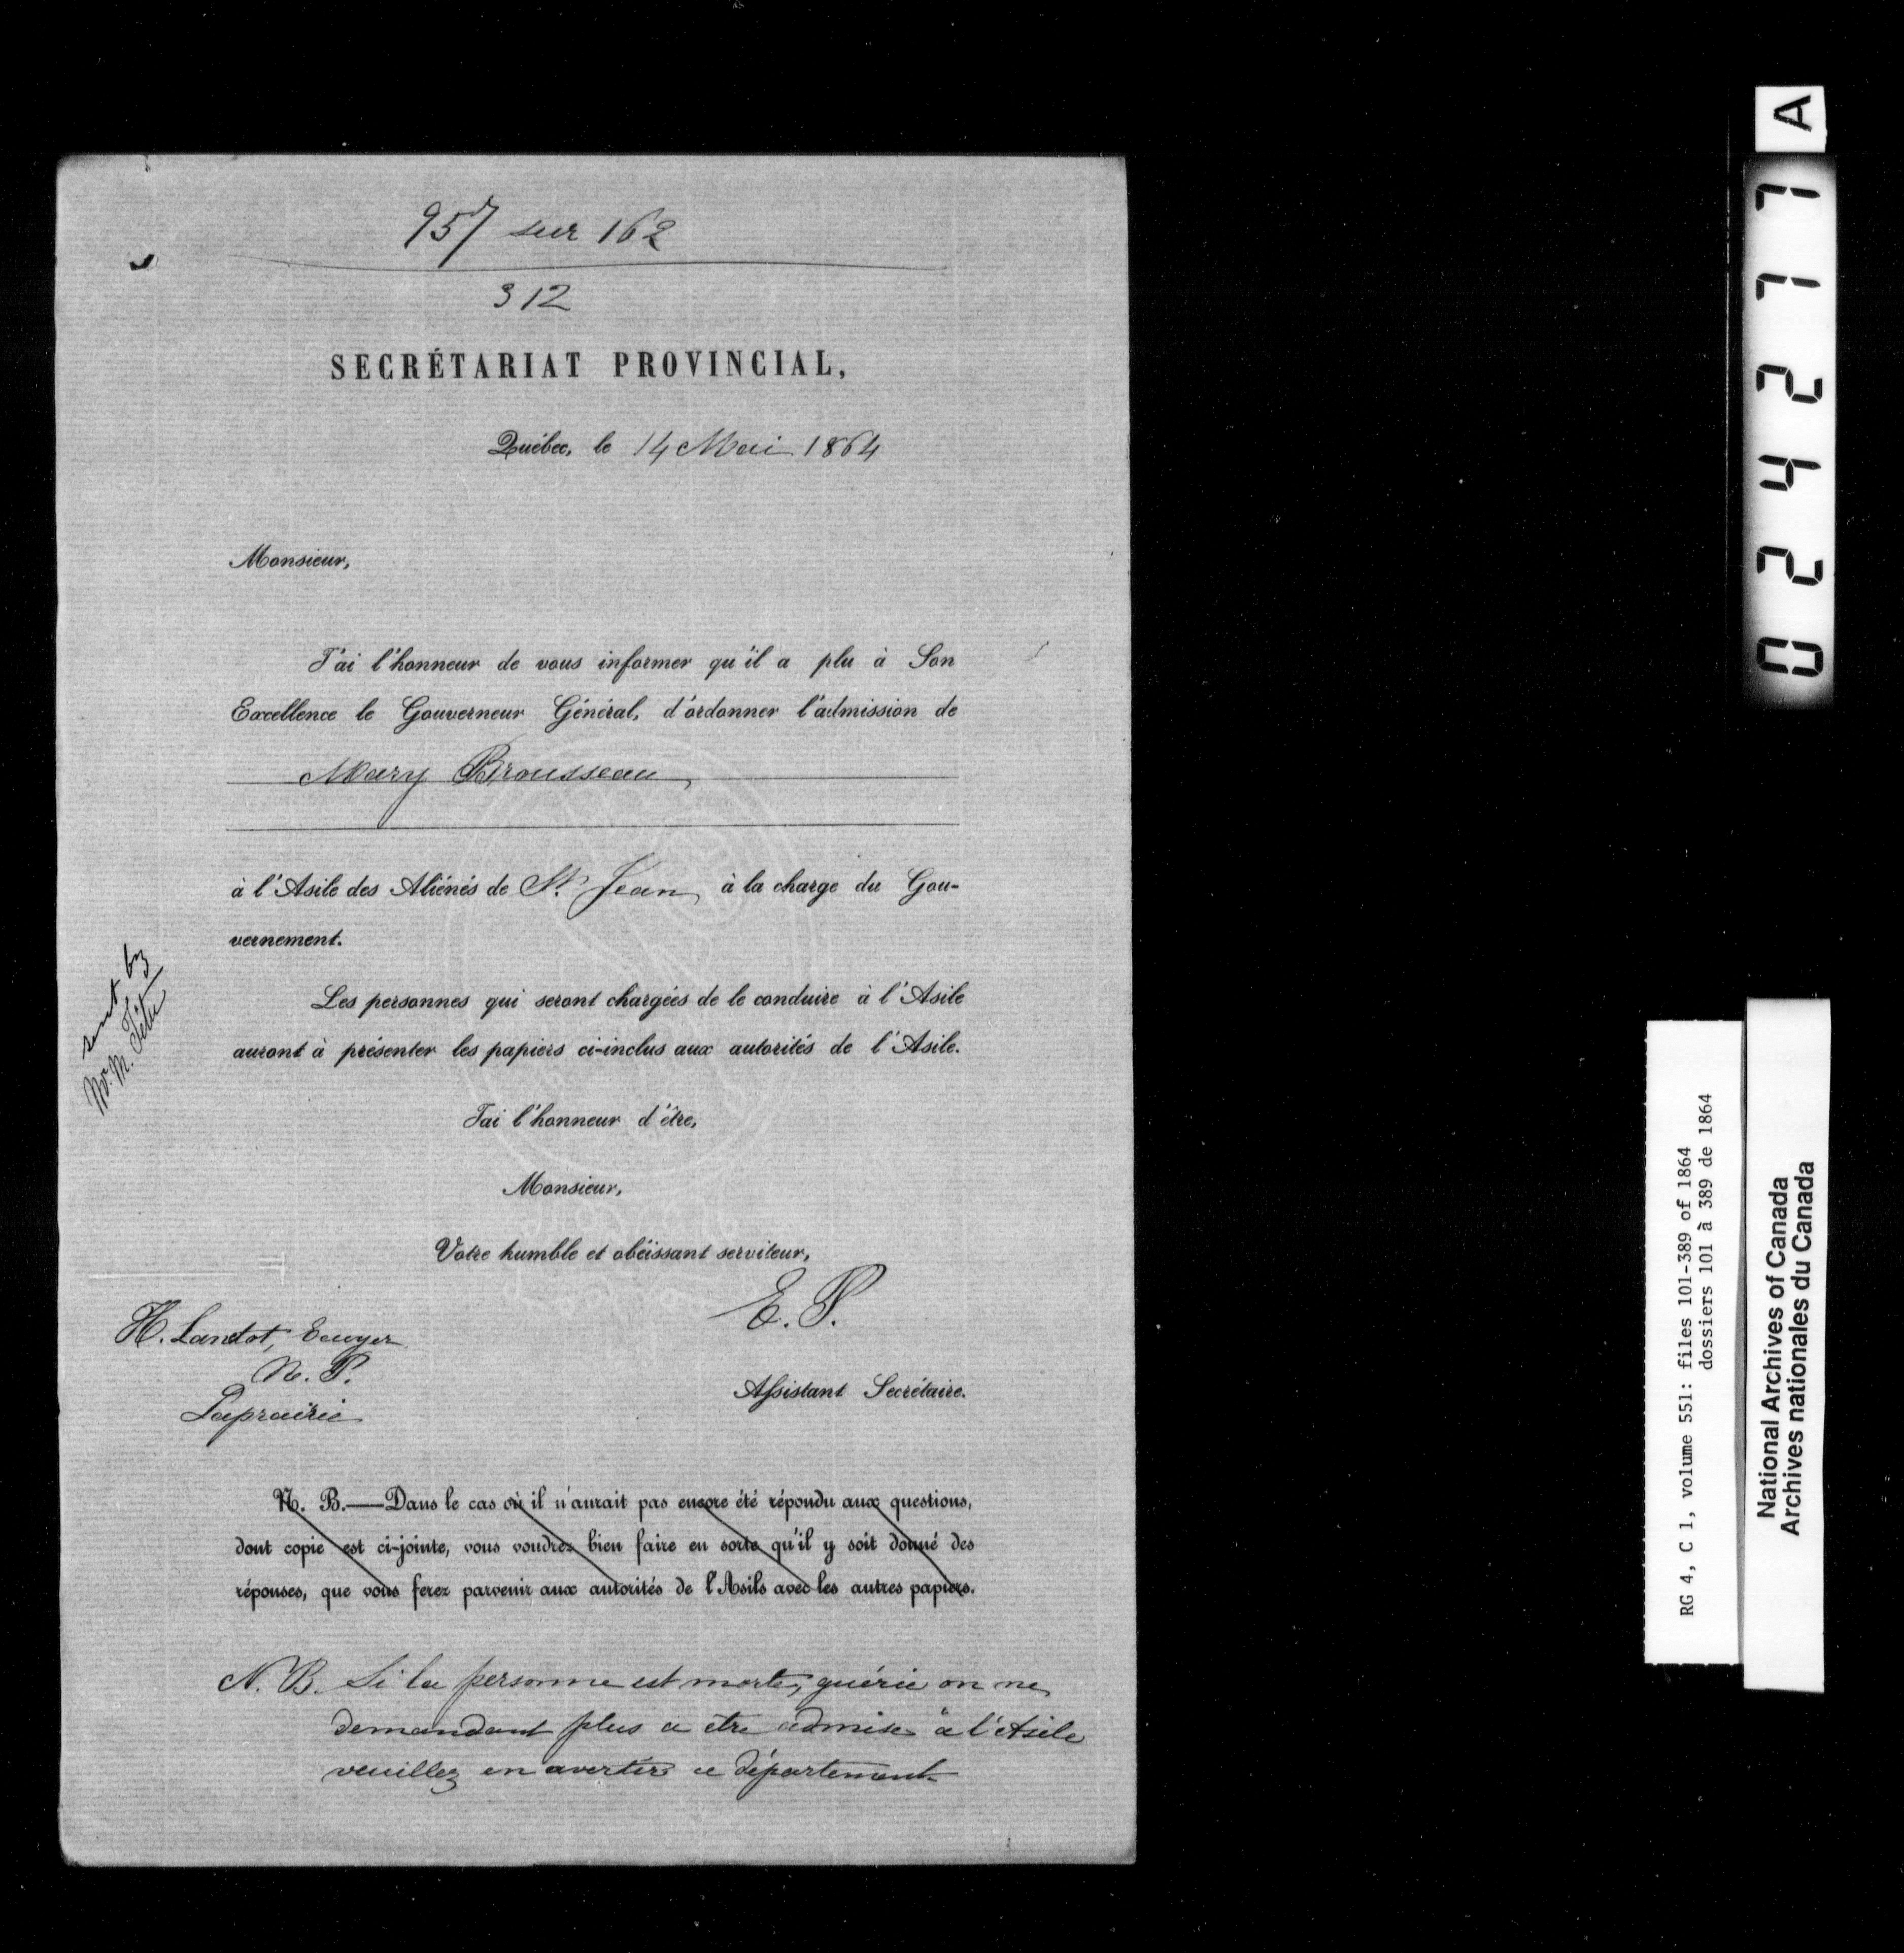 957 sur 162
312
SECRÉTARIAT PROVINCIAL,
Québec, le 14 Mai 1864
Monsieur,
J'ai l'honneur de vous informer qu'il a plu à Son
Excellence le Gouverneur Général, d'ordonner l'admission de
Mary Brousseau
à l'Asile des Aliénés de St. Jean, à la charge du Gou-
vernement.
sent by
Mr. M. Têtu
Les personnes qui seront chargées de le conduire à l'Asile
auront à présenter les papiers ci-inclus aux autorités de l'Asile.
J'ai l'honneur d'être,
Monsieur,
Votre humble et obéissant serviteur,
E. P.
Assistant Secrétaire.
H. Lanctot, Ecuyer
N. P.
Laprairie
N. B.—Dans le cas où il n'aurait pas encore été répondu aux questions,
dont copie est ci-jointe, vous voudrez bien faire en sorte qu'il y soit donné des
réponses, que vous ferez parvenir aux autorités de l'Asils avec les autres papiers.
N. B. Si la personne est morte, guérie ou ne
demandant plus a être admise à l'Asile
veuillez en avertir ce département
024277 A
RG 4, C 1, volume 551: files 101-389 of 1864
dossiers 101 à 389 de 1864
National Archives of Canada
Archives nationales du Canada